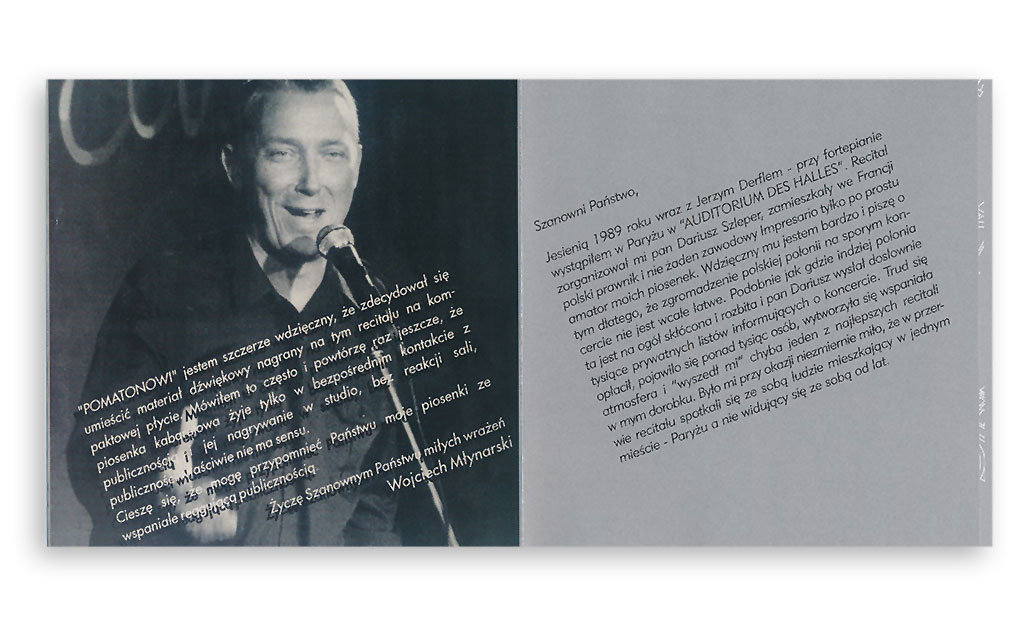 Szanowni Państwo,
Jesienią 1989 roku wraz z Jerzym Derflem - przy fortepianie
wystąpiłem w Paryżu w "AUDITORIUM DES HALLES". Recital
zorganizował mi pan Dariusz Szleper, zamieszkały we Francji
polski prawnik i nie żaden zawodowy Impresario tylko po prostu
amator moich piosenek. Wdzięczny mu jestem bardzo i piszę o
tym dlatego, że zgromadzenie polskiej polonii na sporym kon-
cercie nie jest wcale łatwe. Podobnie jak gdzie indziej polonia
ta jest na ogół skłócona i rozbita i pan Dariusz wysłał dosłownie
tysiące prywatnych listów informujących o koncercie. Trud się
opłacił, pojawiło się ponad tysiąc osób, wytworzyła się wspaniała
atmosfera i "wyszedł mi" chyba jeden z najlepszych recitali
w mym dorobku. Było mi przy okazji niezmiernie miło, że w przer-
wie recitalu spotkali się ze sobą ludzie mieszkający w jednym
mieście - Paryżu a nie widujący się ze sobą od lat.
"POMATONOWI" jestem szczerze wdzięczny, że zdecydował się
umieścić materiał dźwiękowy nagrany na tym recitalu na kom-
paktowej płycie. Mówiłem to często i powtórzę raz jeszcze, że
piosenka kabaretowa żyje tylko w bezpośrednim kontakcie z
publicznością i jej nagrywanie w studio, bez reakcji sali,
publiczności właściwie nie ma sensu.
Cieszę się, że mogę przypomnieć Państwu moje piosenki ze
wspaniale reagującą publicznością.
Życzę Szanownym Państwu miłych wrażeń
Wojciech Młynarski